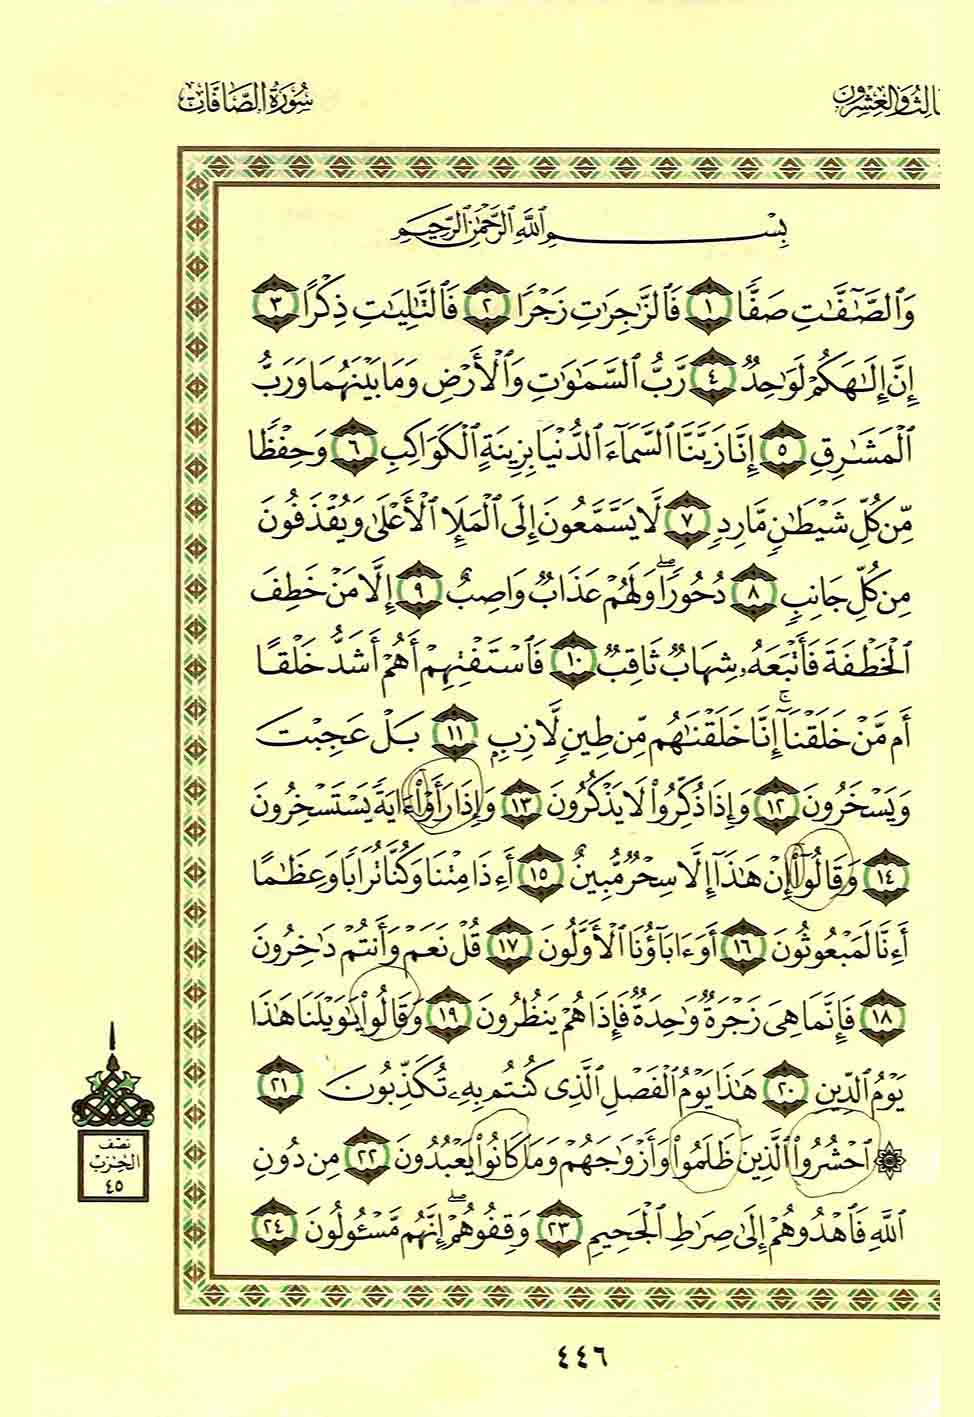 الثالث والعشرون
سُورَةُ الصَّافَّاتِ
بِسْمِ ٱللَّهِ ٱلرَّحْمَٰنِ ٱلرَّحِيمِ
وَٱلصَّٰٓفَّٰتِ صَفًّا ١ فَٱلزَّٰجِرَٰتِ زَجْرًا ٢ فَٱلتَّٰلِيَٰتِ ذِكْرًا ٣
إِنَّ إِلَٰهَكُمْ لَوَٰحِدٌ ٤ رَّبُّ ٱلسَّمَٰوَٰتِ وَٱلْأَرْضِ وَمَا بَيْنَهُمَا وَرَبُّ
ٱلْمَشَٰرِقِ ٥ إِنَّا زَيَّنَّا ٱلسَّمَآءَ ٱلدُّنْيَا بِزِينَةٍ ٱلْكَوَاكِبِ ٦ وَحِفْظًا
مِّن كُلِّ شَيْطَٰنٍ مَّارِدٍ ٧ لَّا يَسَّمَّعُونَ إِلَى ٱلْمَلَإِ ٱلْأَعْلَىٰ وَيُقْذَفُونَ
مِن كُلِّ جَانِبٍ ٨ دُحُورًا ۖ وَلَهُمْ عَذَابٌ وَاصِبٌ ٩ إِلَّا مَنْ خَطِفَ
ٱلْخَطْفَةَ فَأَتْبَعَهُۥ شِهَابٌ ثَاقِبٌ ١٠ فَٱسْتَفْتِهِمْ أَهُمْ أَشَدُّ خَلْقًا
أَم مَّنْ خَلَقْنَآ ۚ إِنَّا خَلَقْنَٰهُم مِّن طِينٍ لَّازِبٍ ١١ بَلْ عَجِبْتَ
وَيَسْخَرُونَ ١٢ وَإِذَا ذُكِّرُوا۟ لَا يَذْكُرُونَ ١٣ وَإِذَا رَأَوْا۟ ءَايَةً يَسْتَسْخِرُونَ
١٤ وَقَالُوٓا۟ إِنْ هَٰذَآ إِلَّا سِحْرٌ مُّبِينٌ ١٥ أَءِذَا مِتْنَا وَكُنَّا تُرَابًا وَعِظَٰمًا
أَءِنَّا لَمَبْعُوثُونَ ١٦ أَوَءَابَآؤُنَا ٱلْأَوَّلُونَ ١٧ قُلْ نَعَمْ وَأَنتُمْ دَٰخِرُونَ
١٨ فَإِنَّمَا هِىَ زَجْرَةٌ وَٰحِدَةٌ فَإِذَا هُمْ يَنظُرُونَ ١٩ وَقَالُوا۟ يَٰوَيْلَنَا هَٰذَا
يَوْمُ ٱلدِّينِ ٢٠ هَٰذَا يَوْمُ ٱلْفَصْلِ ٱلَّذِى كُنتُم بِهِۦ تُكَذِّبُونَ ٢١
۞ ٱحْشُرُوا۟ ٱلَّذِينَ ظَلَمُوا۟ وَأَزْوَٰجَهُمْ وَمَا كَانُوا۟ يَعْبُدُونَ ٢٢ مِن دُونِ
ٱللَّهِ فَٱهْدُوهُمْ إِلَىٰ صِرَٰطِ ٱلْجَحِيمِ ٢٣ وَقِفُوهُمْ ۖ إِنَّهُم مَّسْـُٔولُونَ ٢٤
نصف
الحزب
٤٥
٤٤٦